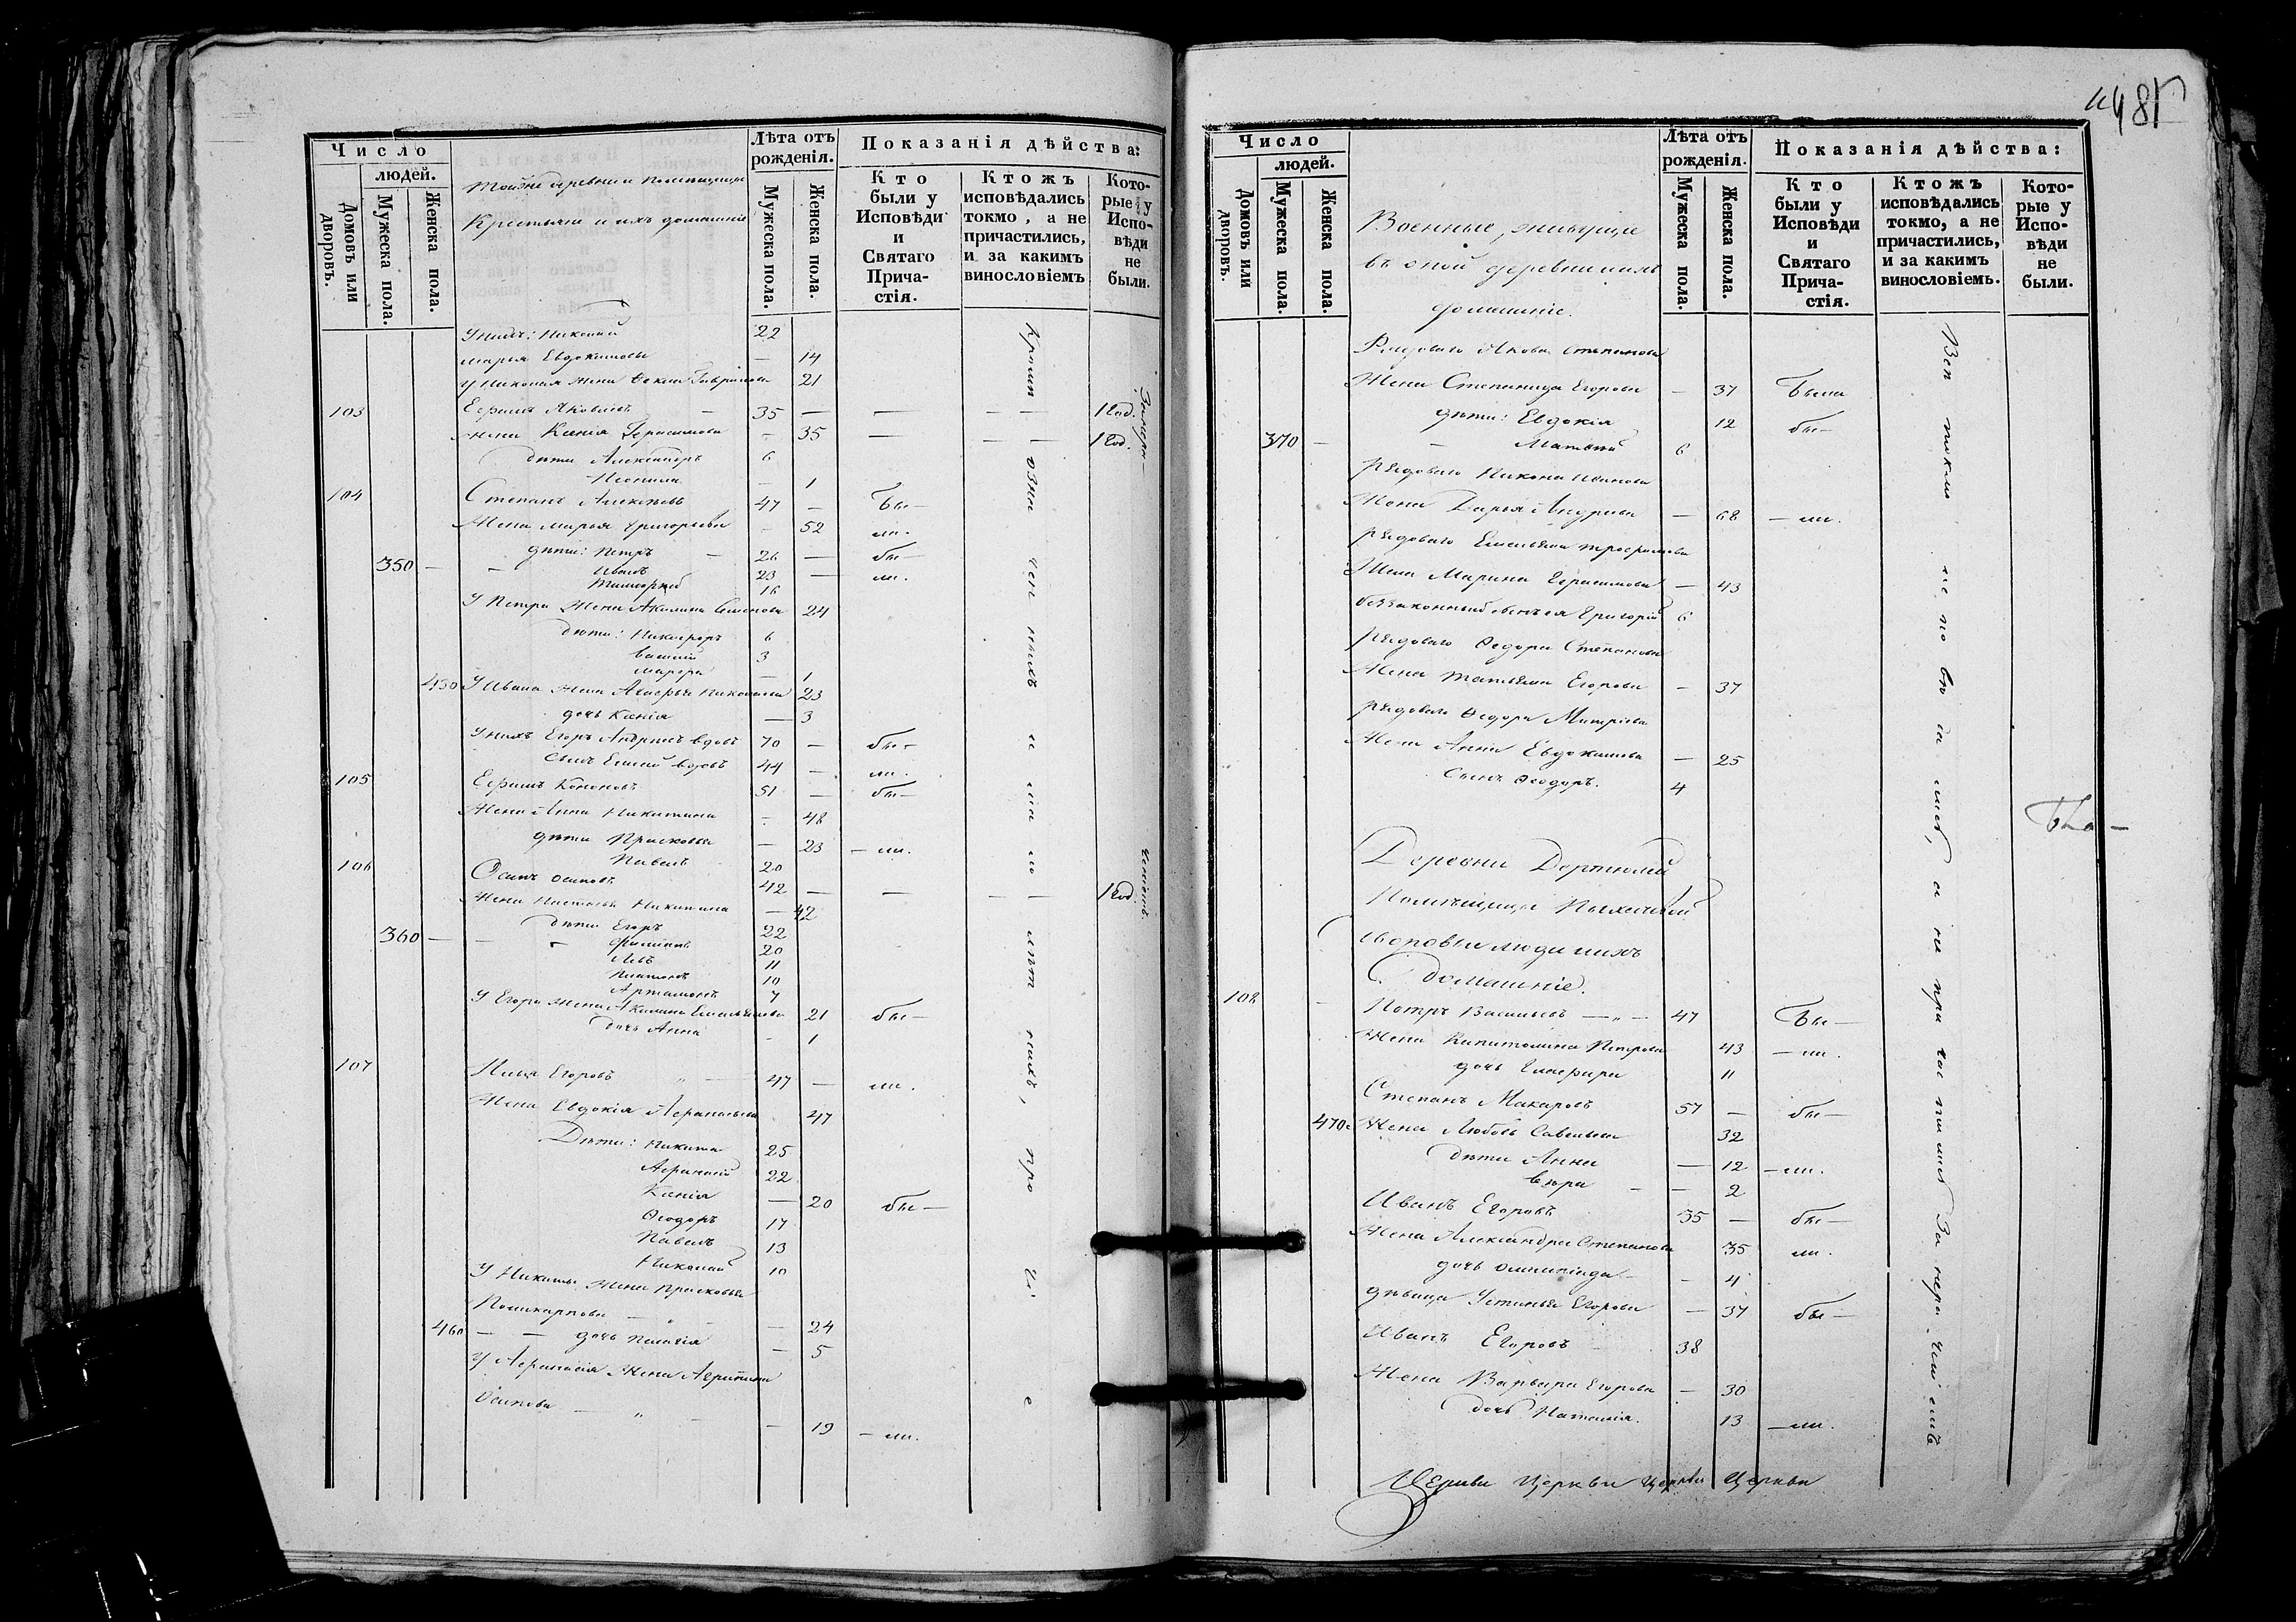 Число
людей.
Домовъ или дворовъ.
Мужеска пола.
Женска пола.
Тойже деревни помещицы
Крестьяне и ихъ домашніе
Лѣта отъ рожденія.
Мужеска пола.
Женска пола.
Показанія дѣйства:
Кто были у Исповѣди и Святаго Причастія.
Ктожъ исповѣдались токмо, а не причастились, и за какимъ винословіемъ
Которые у Исповѣди не были.
У нихъ: Николай 22
Марья Евдокимовы — 14
У Николая жена Гаврилова 21
103 Ефимъ Яковлевъ — 35 — — — — 1 год.
жена Ксенія Герасимова — 35 — — — 1 год.
дѣти Александръ 6
Неонила — 1
104 Степанъ Алексѣевъ 47 — бы—
Жена Марья Григорьева — 52 ли.
дѣти: Петръ — 26 — бы—
350 — — Иванъ 23 — ли.
Тимофей 16
У Петра жена Акилина Семенова 24
дѣти: Никифоръ 6
Василій 3
Марфа — 1
450 У Ивана жена Агафья Николаева 23
дочь Ксенія — 3
У нихъ Егоръ Андреевъ вдовъ 70 — бы—
сынъ Елисей вдовъ 44 — ли.
105 Ефимъ Кононовъ 51 — бы—
Жена Анна Никитина — 48
дѣти Прасковья — 23 — ли.
Павелъ 20
106 Осипъ Осиповъ 42 — — — — 1 год.
Жена Настасья Никитина — 42
дѣти Егоръ 22
360 — — Филипъ 20
Левъ 11
Платонъ 10
Артамонъ 7
У Егора жена Акилина Емельянова 21 бы—
дочь Анна — 1
107 Илья Егоровъ „ — 47 — ли.
Жена Евдокія Афанасьева 47
Дѣти: Никита 25
Афанасій 22
Ксенія — 20 бы—
Ѳеодоръ 17
Павелъ 13
Николай 10
У Никиты жена Прасковья
Поликарпова — „ — — 24
460 — — дочь Пелагія — 5
У Афанасія жена Агрипина
Осипова — „ — — 19 — ли.
485
Число
людей.
Домовъ или дворовъ.
Мужеска пола.
Женска пола.
Военные, живущіе
въ оной деревни и ихъ
домашніе.
Лѣта отъ рожденія.
Мужеска пола.
Женска пола.
Показанія дѣйства:
Кто были у Исповѣди и Святаго Причастія.
Ктожъ исповѣдались токмо, а не причастились, и за какимъ винословіемъ.
Которые у Исповѣди не были.
Рядоваго Якова Степанова
Жена Степанида Егорова — 37 была
дѣти: Евдокія 12 бы—
370 — — Матвѣй 6
рядоваго Никона Иванова
Жена Дарья Андреева — 68 — ли.
рядоваго Емельяна Трофимова
Жена Марина Герасимова — 43
беззаконный сынъ ея Григорій 6
рядоваго Ѳедора Степанова
Жена Татьяна Егорова — 37
рядоваго Ѳедора Митрiева
Жена Анна Евдокимова — 25
Сынъ Ѳеодоръ. 4
Деревни
Помѣщицы
дворовые люди и ихъ
домашніе.
108 Петръ Васильевъ — „ — 47 бы—
Жена Капитолина Петрова 43 — ли.
дочь Глафира 11
Степанъ Макаровъ 57 — бы—
470 Жена Любовь Савельева 32
дѣти Анна — 12 — ли.
Вѣра — — 2
Иванъ Егоровъ 35 — бы—
Жена Александра Степанова 35 ли.
дочь Олимпіада — — 4
дѣвица Устинья Егорова — 37 бы—
Иванъ Егоровъ 38
Жена Варвара Егорова — 30
дочь Наталія. 13 — ли.
Церкви Церкви Церкви Церкви